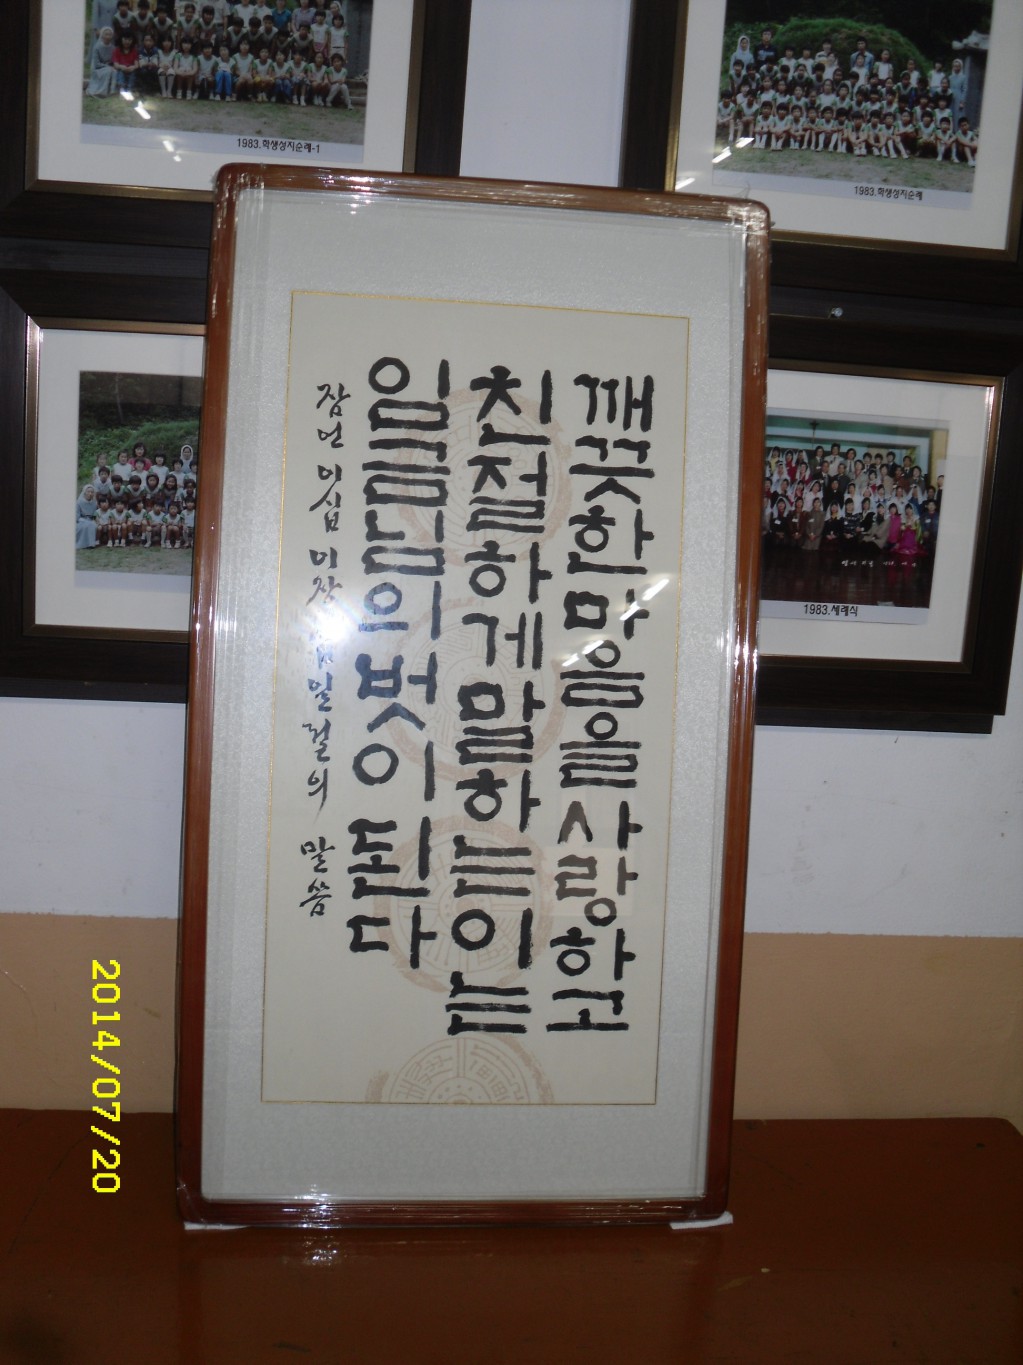 1983.학생성지순례-1
1983.학생성지순례
깨끗한 마음을 사랑하고
친절하게 말하는 이는
임금님의 벗이 된다
잠언 이십 이장 십일절의 말씀
1983.세례식
2014/07/20